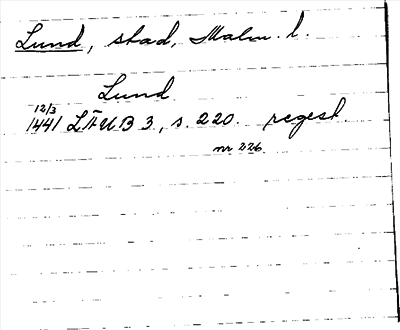 Lund, stad, Malm. l.
Lund
12/3
1441 LÄUB 3, s. 220. regest.
nr 226